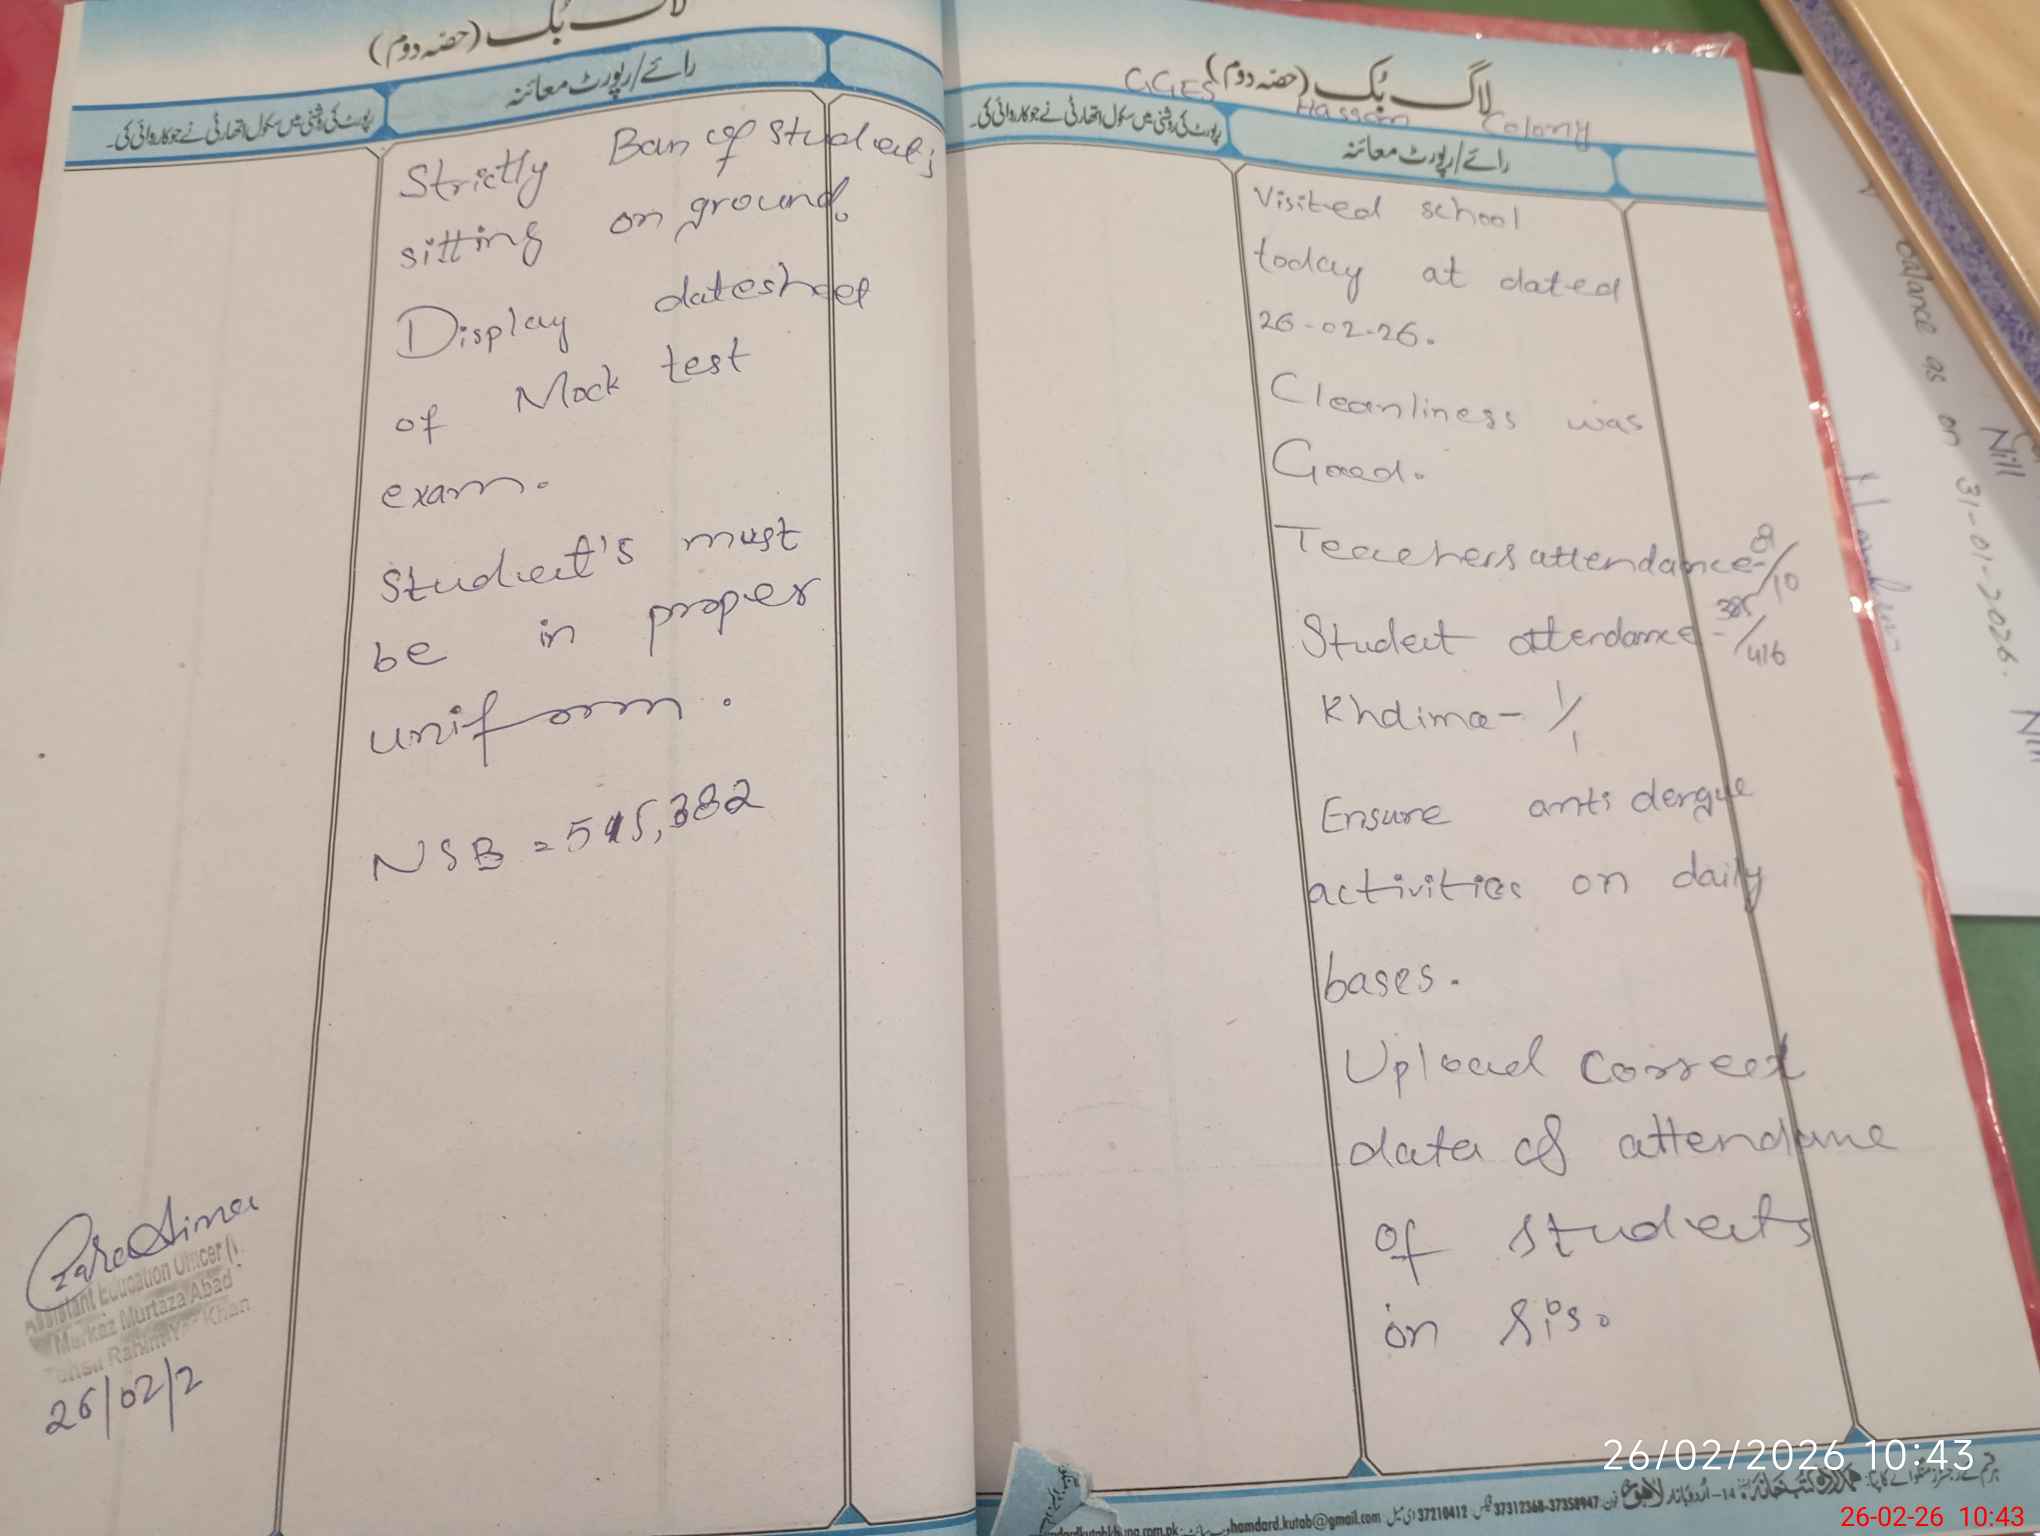 لاگ بُک (حصّہ دوم)
GGES
Hassan Colony
رائے/رپورٹ معائنہ
رپورٹ کی روشنی میں سکول اتھارٹی نے جو کاروائی کی۔
Visited school
today at dated
26-02-26.
Cleanliness was
Good.
Teachers attendance-
/10
Student attendance -
/416
Khdima- 1/1
Ensure anti dengue
activities on daily
bases.
Upload correct
data of attendance
of students
on Sis.
hamdard.kutab@gmail.com
37210412
37312368-37358947
لاگ بُک (حصّہ دوم)
رائے/رپورٹ معائنہ
رپورٹ کی روشنی میں سکول اتھارٹی نے جو کاروائی کی۔
Strictly Ban of students
sitting on ground.
Display datesheet
of Mock test
exam.
Student's must
be in proper
uniform.
NSB =
Assistant Education Officer
Markaz Murtaza Abad
Khan
26/02/2
balance as on 31-01-2026.
Nill
Nill
26/02/2026 10:43
26-02-26 10:43